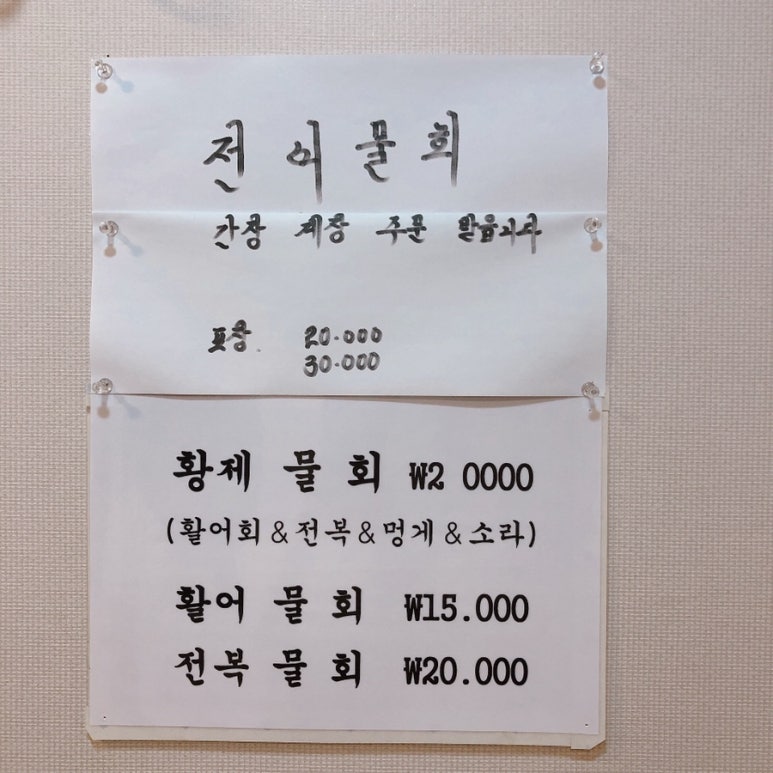 전어물회
간장 게장 주문 받습니다
포장 20.000
30.000
황제 물 회 ₩2 0000
(활어회&전복&멍게&소라)
활어 물 회 ₩15.000
전복 물 회 ₩20.000